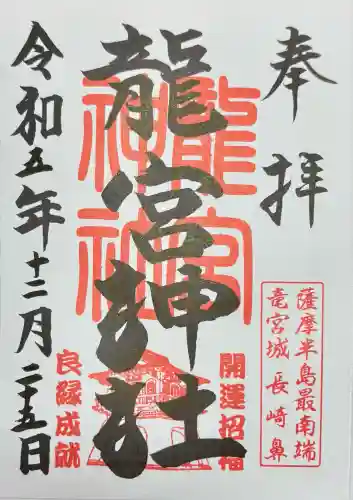 奉拝
薩摩半島最南端
竜宮城 長崎鼻
龍宮神社
龍宮
神社
開運招福
良縁成就
令和五年十二月二十五日